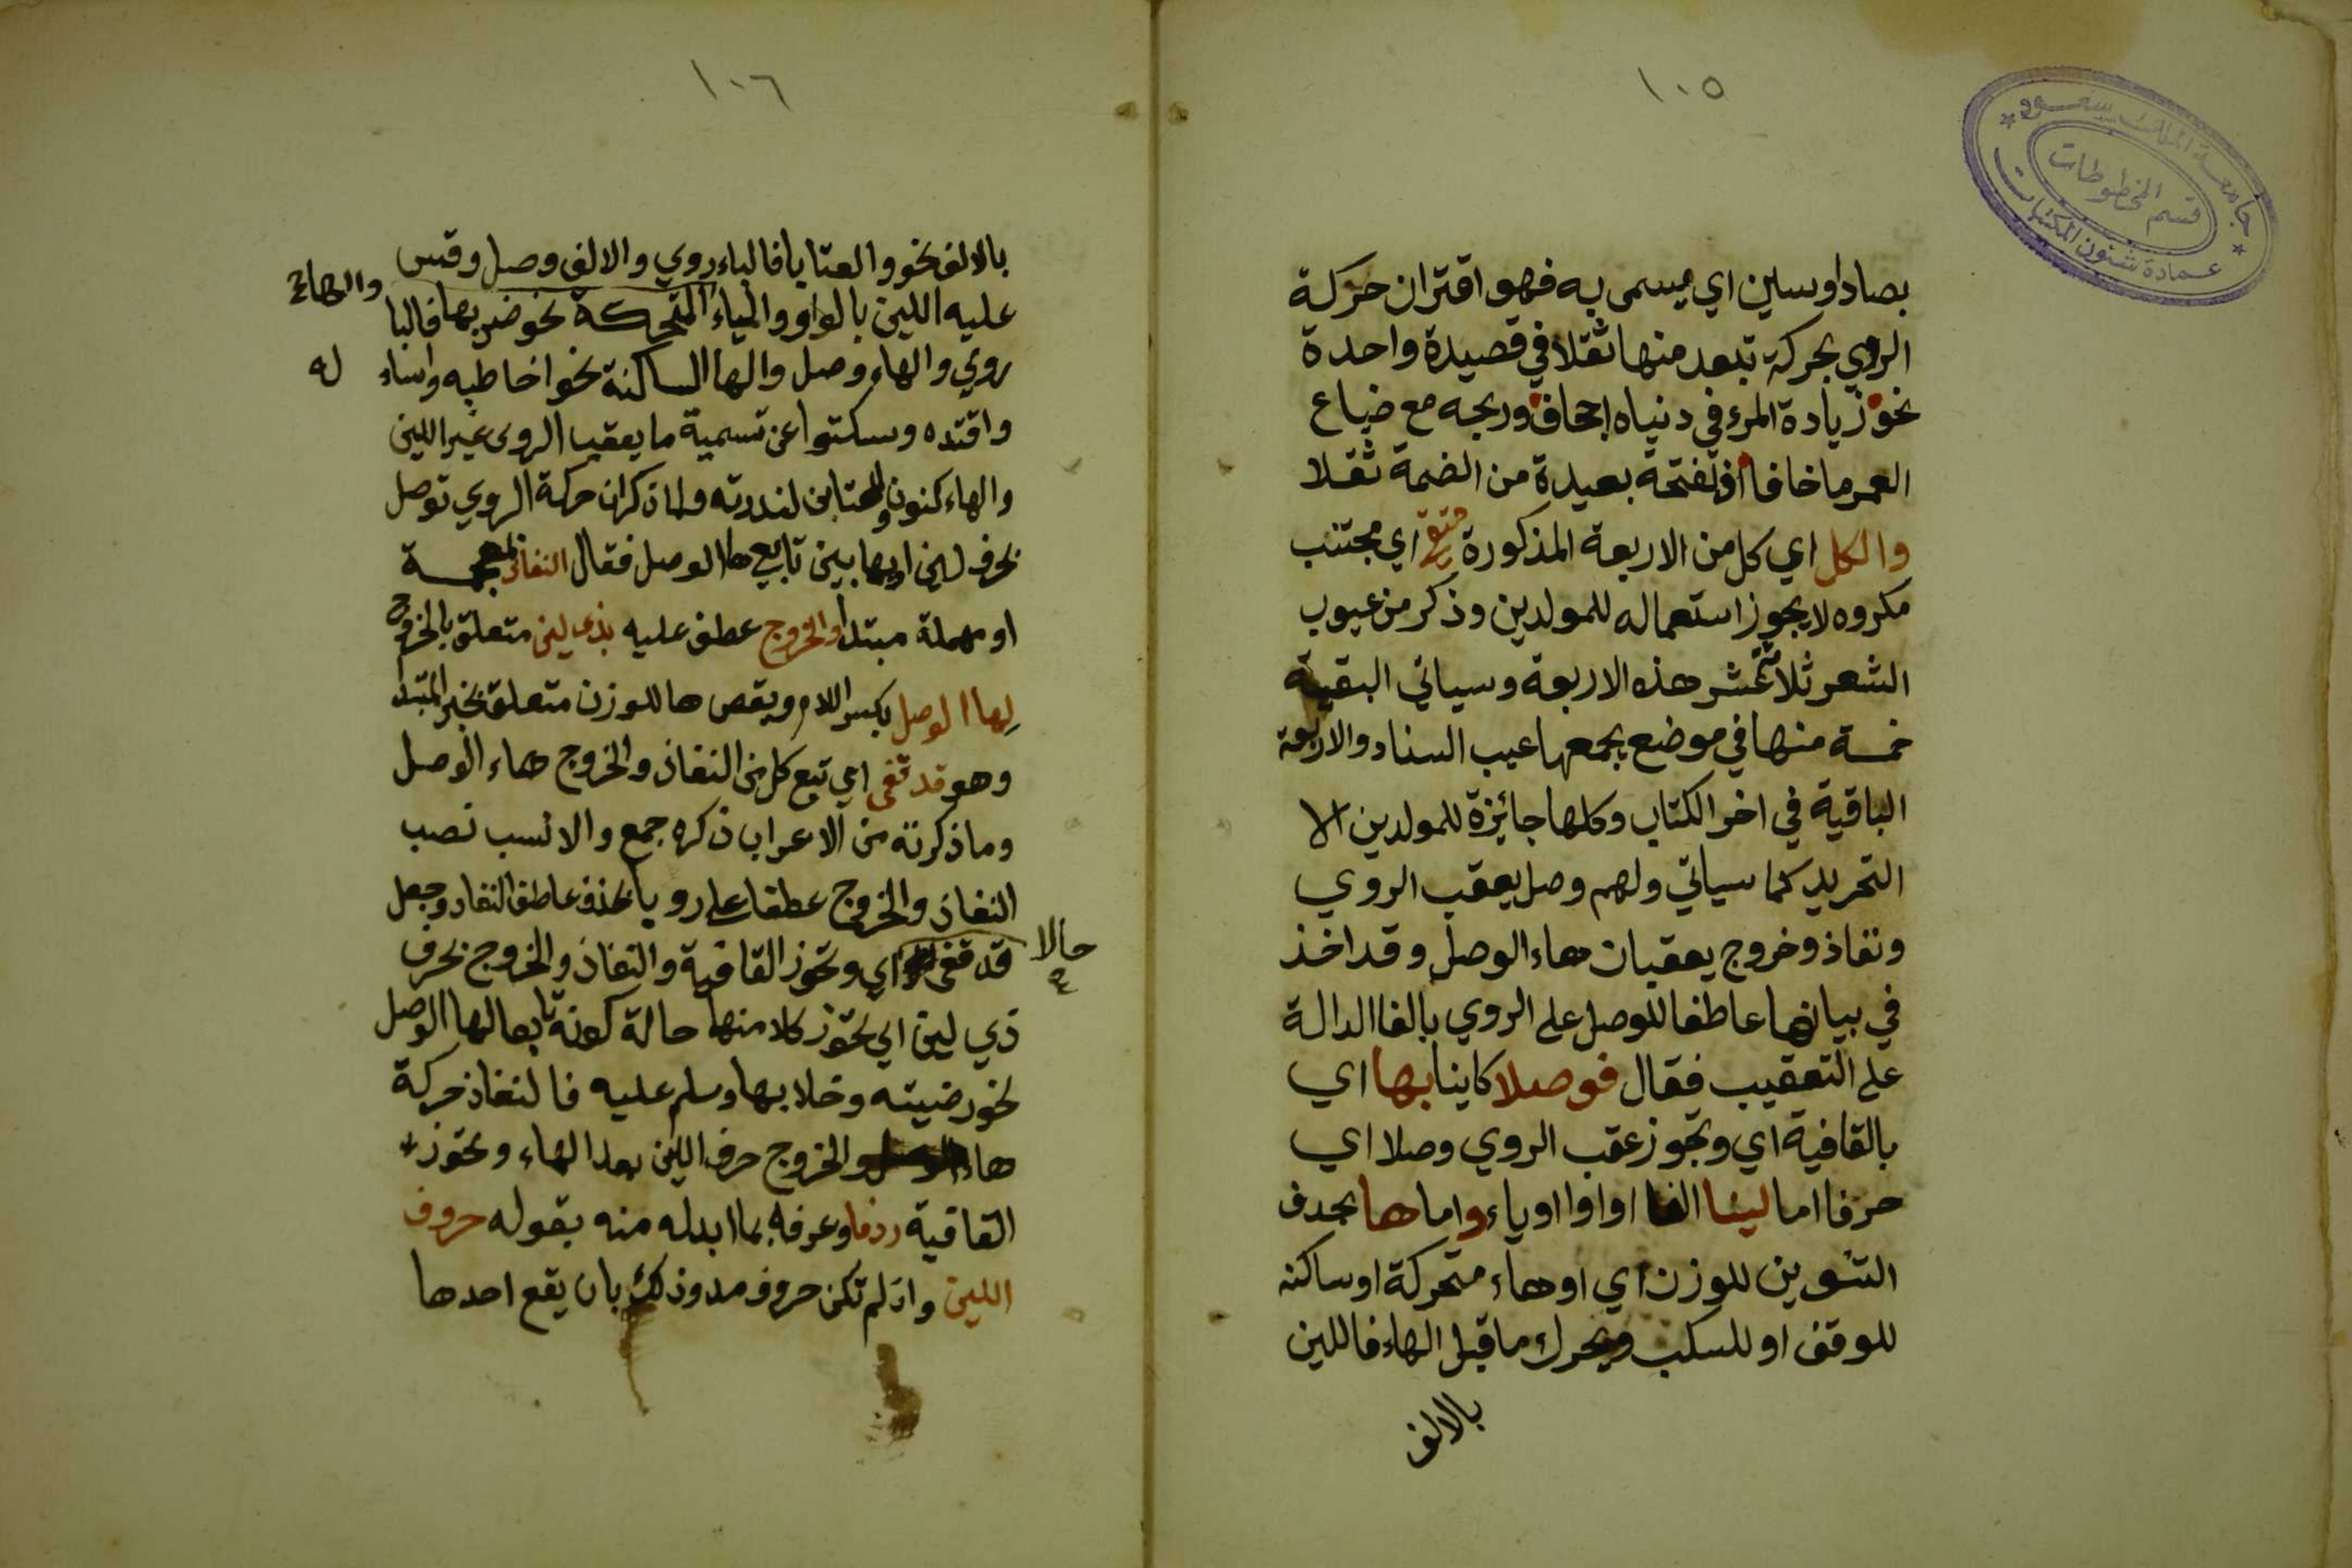 ١٠٥
جامعة الملك سعود
قسم المخطوطات
عمادة شئون المكتبات
بصاد اوسين اي يسمى به فهو اقتران حركة
الروي بحركة تبعد منها ثقلا في قصيدة واحدة
نحو زيادة المرء في دنياه اجحاف وربحه مع ضياع
العمر ما خافا اذ الفتحة بعيدة من الضمة ثقلا
والكل اي كل من الاربعة المذكورة متقى اي مجتنب
مكروه لا يجوز استعماله للمولدين وذكر من عيوب
الشعر ثلاثة عشر هذه الاربعة وسياتي البقية
خمسة منها في موضع يجمعها عيب السناد والاربعة
الباقية في اخر الكتاب وكلها جائزة للمولدين الا
التحريد كما سياتي ولهم وصل يعقب الروي
ونفاذ وخروج يعقبان هاء الوصل وقد اخذ
في بيانها عاطفا للوصل على الروي بالفا الدالة
على التعقيب فقال فوصلا كاينا بها اي
بالقافية اي وتحوز عقب الروي وصلا اي
حرفا اما لينا الفا او واوا او ياء واما ها بحدف
التنوين للوزن اي او هاء متحركة او ساكنه
للوقف او للسكب ويحرك ما قبل الهاء فاللين
بالالف
١٠٦
بالالف نحو والعتابا فالباء روي والالف وصل وقس
عليه اللين بالواو والياء المتحركة نحو ضربها فالبا
والهاء
روي والهاء وصل والها الساكنة نحو اخاطبه واساء له
واقتده وسكتوا عن تسمية ما يعقب الروي غير اللين
والهاء كنون والعتابن لندرته ولما ذكر ان حركة الروي توصل
بحرف لين او بها بين تابع ها الوصل فقال النفاذ بمعجمة
او مهملة مبتدا والخروج عطف عليه بذي لين متعلق بالخروج
لها الوصل بكسر اللام ويقص ها للوزن متعلق بخبر المبتدا
وهو قد قفى اي تبع كل من النفاذ والخروج هاء الوصل
وما ذكرته من الاعراب ذكره جمع والانسب نصب
النفاذ والخروج عطفا على رويا بحذف عاطف النفاد وجعل
قد قفى حالا اي وتحوز القافية والنفاذ والخروج بحرف
ذي لين اي تحوز كلا منها حالة كونه تابعا لها الوصل
نحو رضيته وخلا بها وسلم عليه فالنفاذ حركة
هاء الوصل والخروج حرف اللين بعد الهاء وتحوز
القافية ردفا وعرفه بما ابدله منه بقوله حروف
اللين وان لم تكن حروف مد وذلك بان يقع احدها